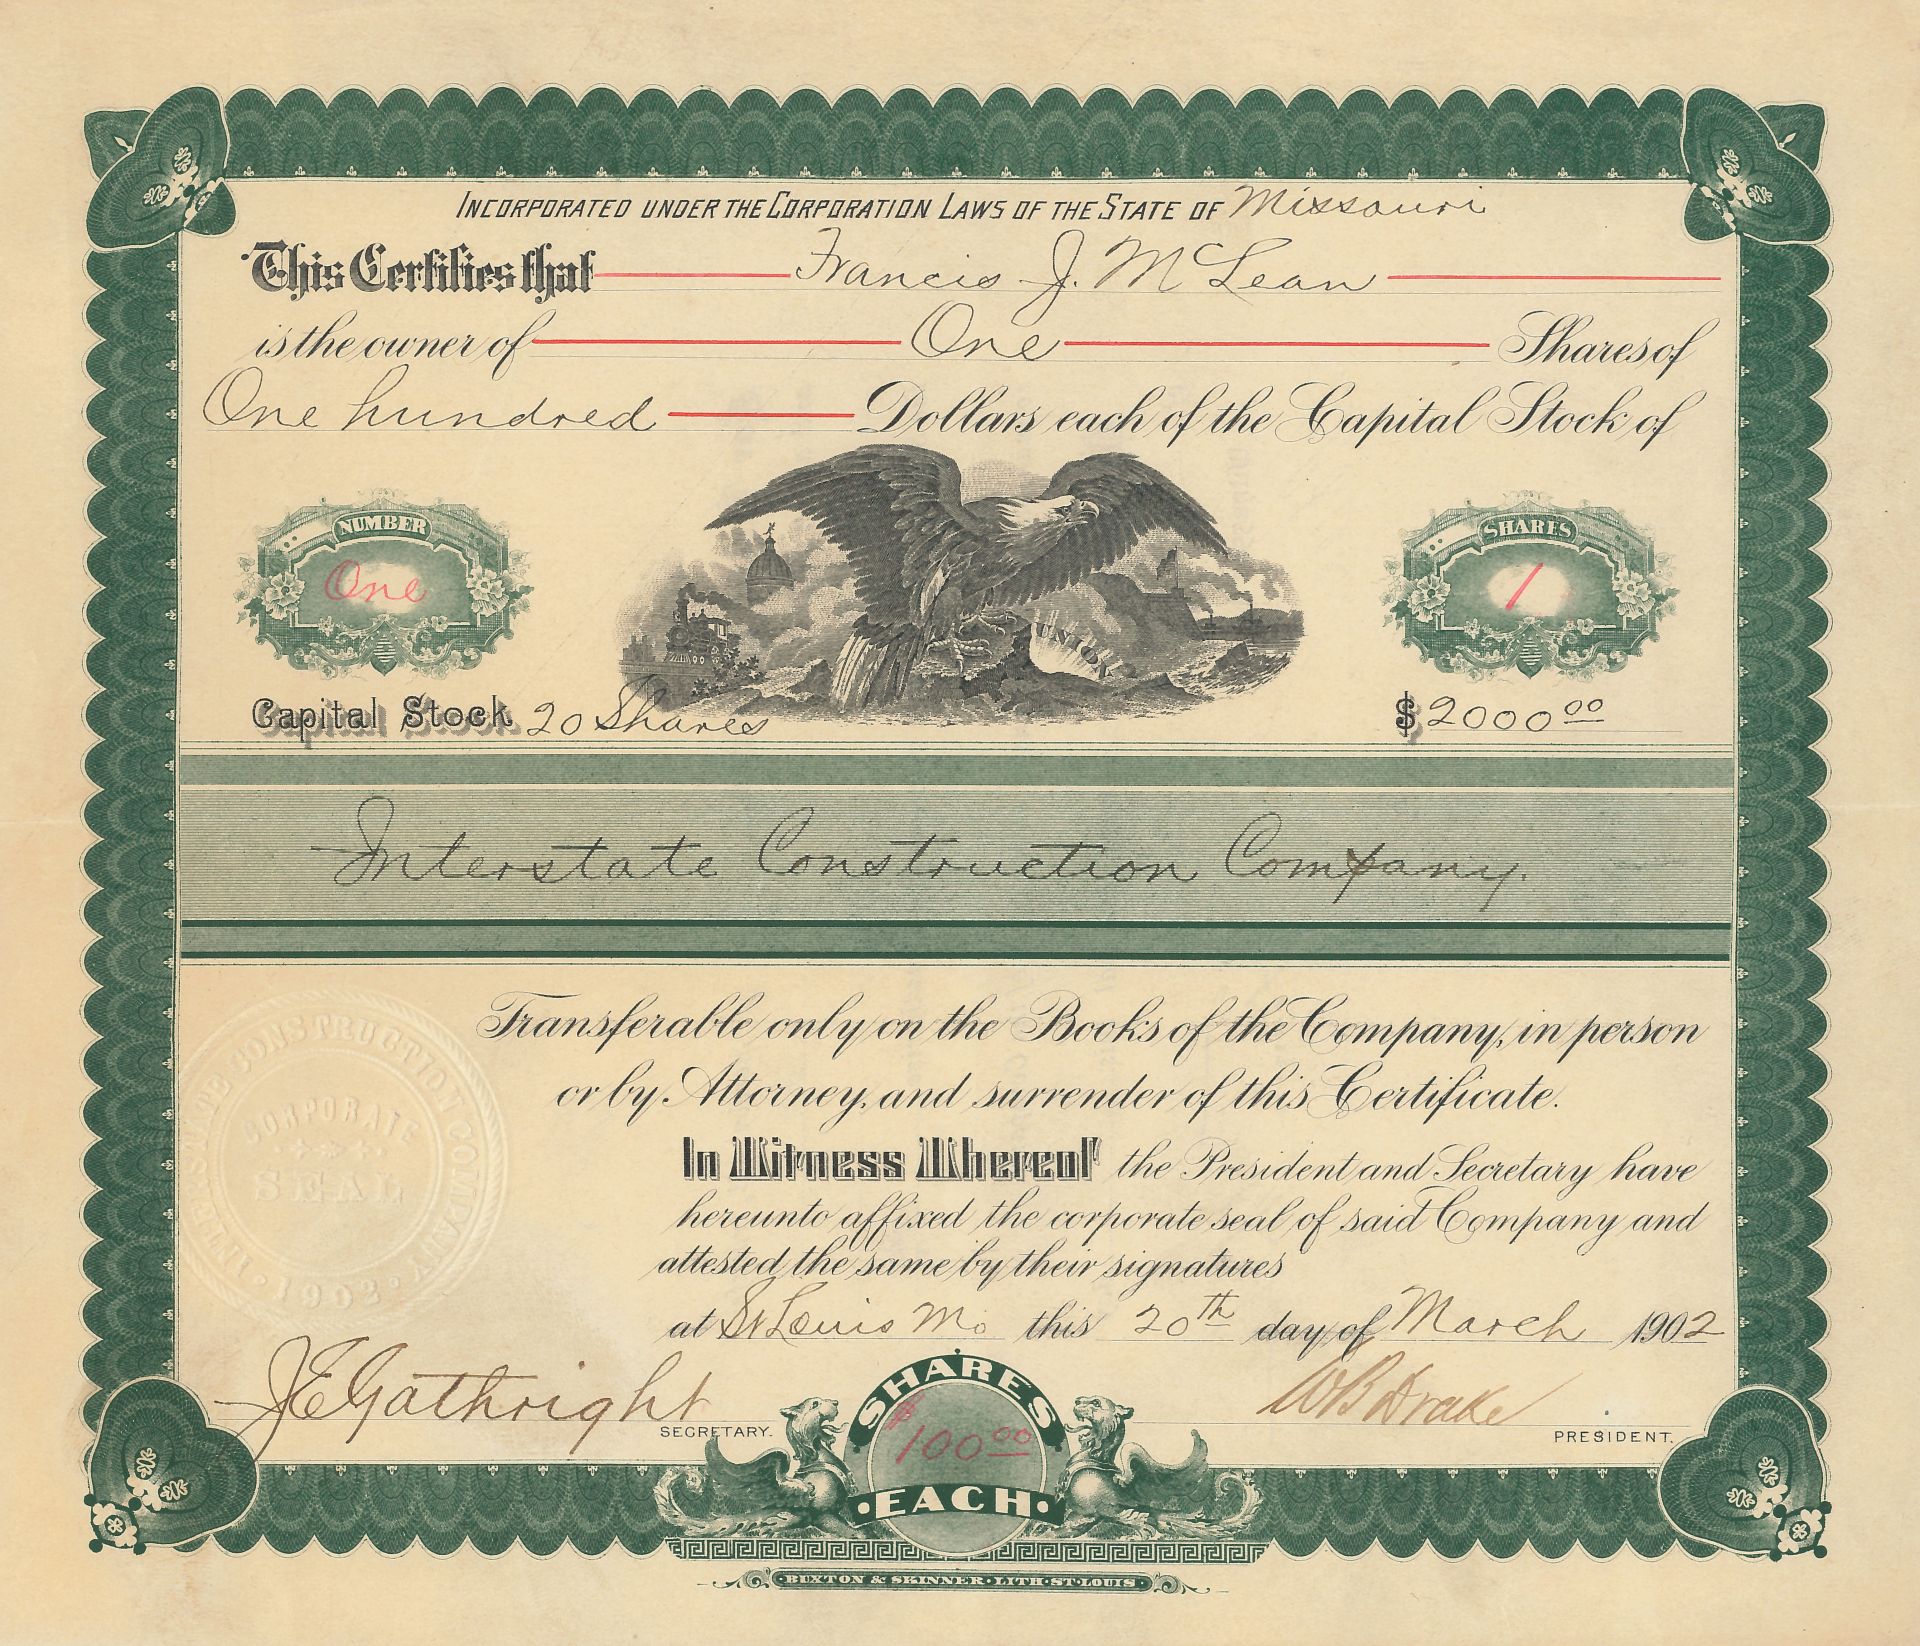 INCORPORATED UNDER THE CORPORATION LAWS OF THE STATE OF Missouri
This Certifies that Francis J. McLean
is the owner of One Shares of
One hundred Dollars each of the Capital Stock of
NUMBER
One
SHARES
1
UNION
Capital Stock 20 Shares $2000 00
Interstate Construction Company.
Transferable only on the Books of the Company, in person
or by Attorney, and surrender of this Certificate.
INTERSTATE CONSTRUCTION COMPANY
CORPORATE
SEAL
1902
In Witness Whereof the President and Secretary have
hereunto affixed the corporate seal of said Company and
attested the same by their signatures
at St Louis Mo this 20th day of March 1902
J E Gathright
SECRETARY.
W B Drake
PRESIDENT.
SHARES
$100 00
EACH
BUXTON & SKINNER·LITH·ST·LOUIS